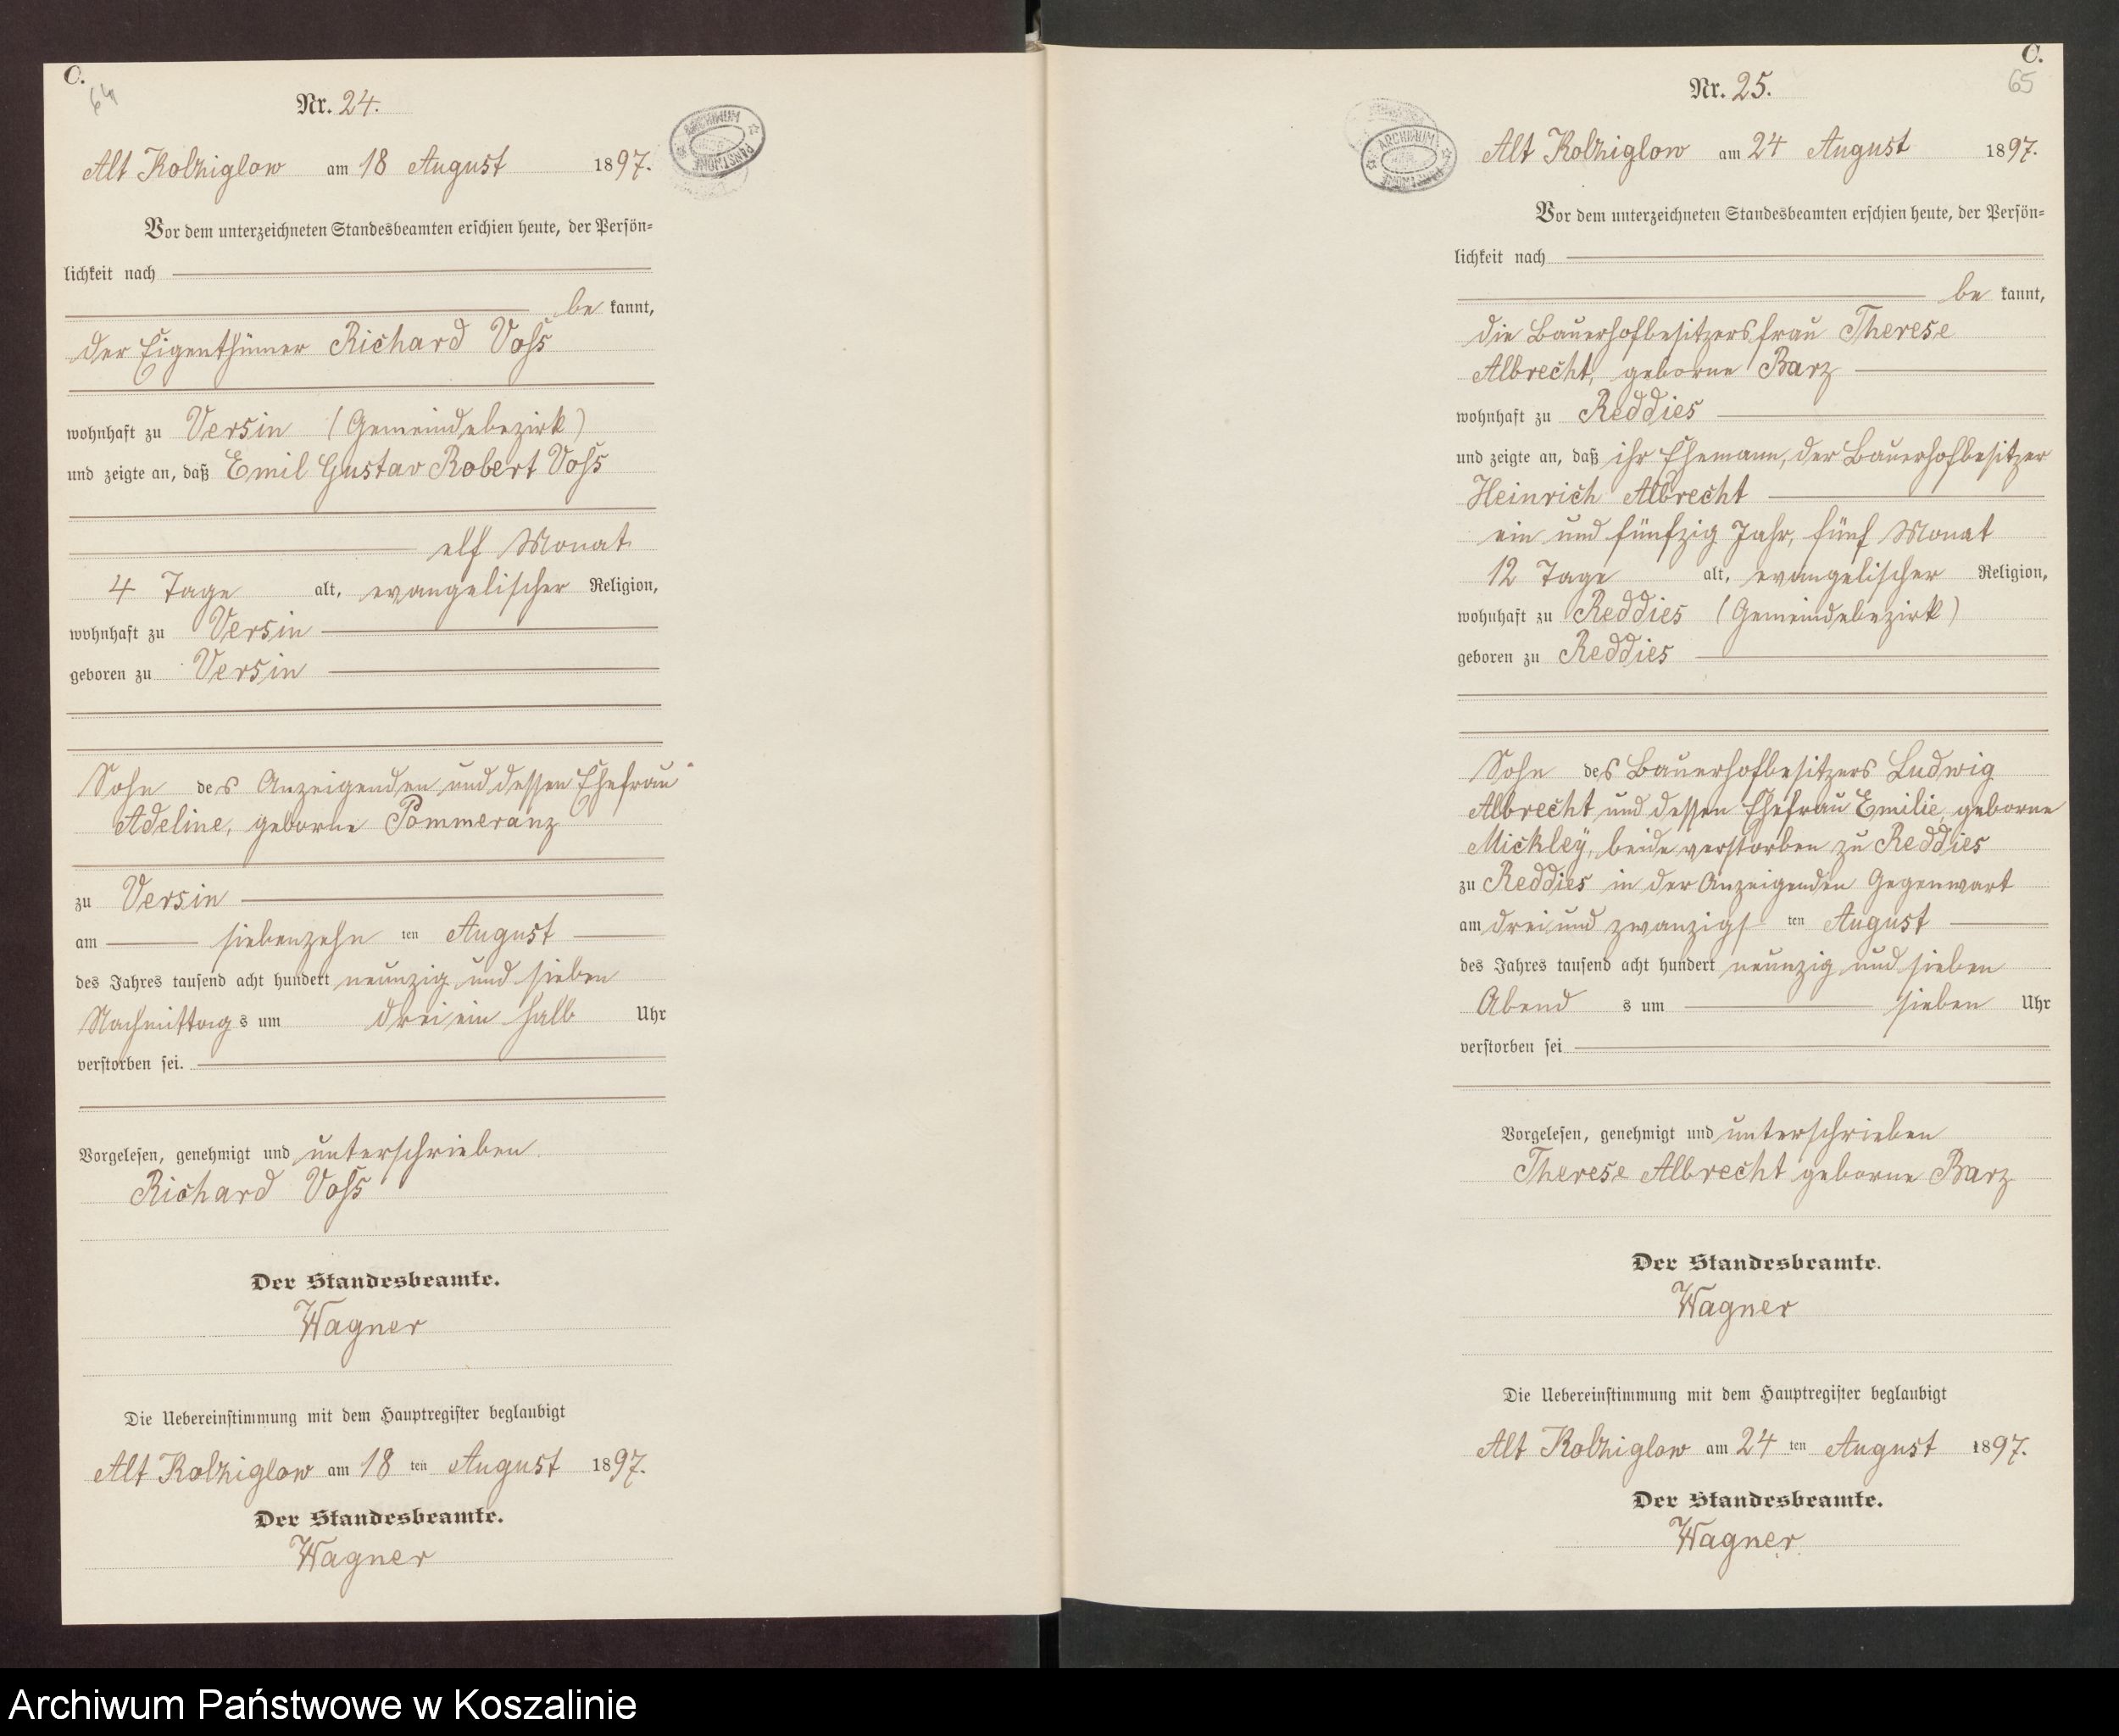 C.
64
Nr. 24.
Alt Kolziglow am 18 August 1897.
Vor dem unterzeichneten Standesbeamten erschien heute, der Persön-
lichkeit nach
be kannt,
der Eigenthümer Richard Voß
wohnhaft zu Versin (Gemeindebezirk)
und zeigte an, daß Emil Gustav Robert Voß
elf Monat
4 Tage alt, evangelischer Religion,
wohnhaft zu Versin
geboren zu Versin
Sohn des Anzeigenden und dessen Ehefrau
Adeline, geborne Pommeranz
zu Versin
am siebenzehn ten August
des Jahres tausend acht hundert neunzig und sieben
Nachmittag s um drei ein halb Uhr
verstorben sei.
Vorgelesen, genehmigt und unterschrieben.
Richard Voß
Der Standesbeamte.
Wagner
Die Uebereinstimmung mit dem Hauptregister beglaubigt
Alt Kolziglow am 18 ten August 1897.
Der Standesbeamte.
Wagner
ARCHIWUM PAŃSTWOWE
C.
65
Nr. 25.
ARCHIWUM PAŃSTWOWE
Alt Kolziglow am 24 August 1897.
Vor dem unterzeichneten Standesbeamten erschien heute, der Persön-
lichkeit nach
be kannt,
die Bauerhofbesitzersfrau Therese
Albrecht, geborne Barz
wohnhaft zu Reddies
und zeigte an, daß ihr Ehemann, der Bauerhofbesitzer
Heinrich Albrecht
ein und fünfzig Jahr, fünf Monat
12 Tage alt, evangelischer Religion,
wohnhaft zu Reddies (Gemeindebezirk)
geboren zu Reddies
Sohn des Bauerhofbesitzers Ludwig
Albrecht und dessen Ehefrau Emilie, geborne
Mickley, beide verstorben zu Reddies
zu Reddies in der Anzeigenden Gegenwart
am drei und zwanzigs ten August
des Jahres tausend acht hundert neunzig und sieben
Abend s um sieben Uhr
verstorben sei
Vorgelesen, genehmigt und unterschrieben
Therese Albrecht geborne Barz
Der Standesbeamte.
Wagner
Die Uebereinstimmung mit dem Hauptregister beglaubigt
Alt Kolziglow am 24 ten August 1897.
Der Standesbeamte.
Wagner
Archiwum Państwowe w Koszalinie